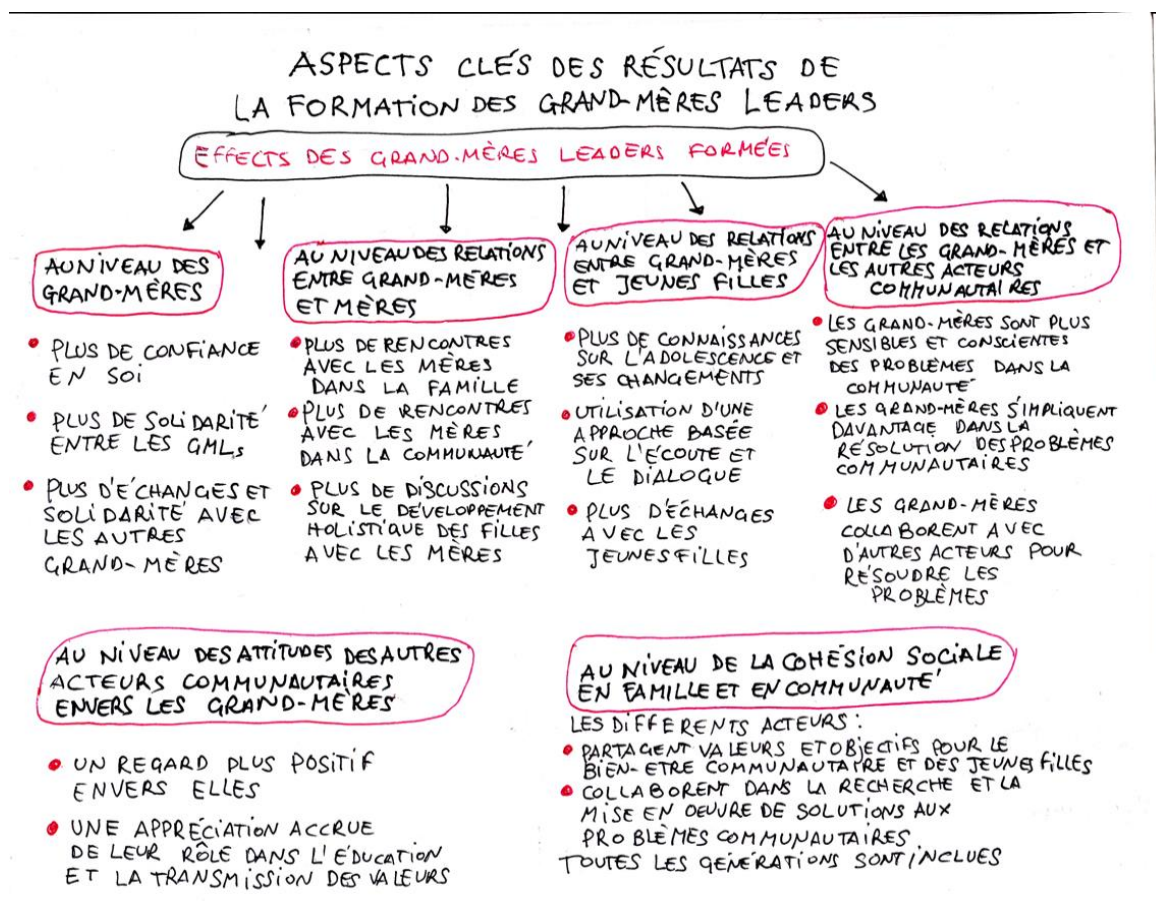 ASPECTS CLÉS DES RÉSULTATS DE
LA FORMATION DES GRAND-MÈRES LEADERS
EFFECTS DES GRAND-MÈRES LEADERS FORMÉES
AU NIVEAU DES
GRAND-MÈRES
• PLUS DE CONFIANCE
EN SOI
• PLUS DE SOLIDARITÉ
ENTRE LES GMLs
• PLUS D'ÉCHANGES ET
SOLIDARITÉ AVEC
LES AUTRES
GRAND-MÈRES
AU NIVEAU DES RELATIONS
ENTRE GRAND-MÈRES
ET MÈRES
• PLUS DE RENCONTRES
AVEC LES MÈRES
DANS LA FAMILLE
• PLUS DE RENCONTRES
AVEC LES MÈRES
DANS LA COMMUNAUTÉ
• PLUS DE DISCUSSIONS
SUR LE DÉVELOPPEMENT
HOLISTIQUE DES FILLES
AVEC LES MÈRES
AU NIVEAU DES RELATIONS
ENTRE GRAND-MÈRES
ET JEUNES FILLES
• PLUS DE CONNAISSANCES
SUR L'ADOLESCENCE ET
SES CHANGEMENTS
• UTILISATION D'UNE
APPROCHE BASÉE
SUR L'ÉCOUTE ET
LE DIALOGUE
• PLUS D'ÉCHANGES
AVEC LES
JEUNES FILLES
AU NIVEAU DES RELATIONS
ENTRE LES GRAND-MÈRES ET
LES AUTRES ACTEURS
COMMUNAUTAIRES
• LES GRAND-MÈRES SONT PLUS
SENSIBLES ET CONSCIENTES
DES PROBLÈMES DANS LA
COMMUNAUTÉ
• LES GRAND-MÈRES S'IMPLIQUENT
DAVANTAGE DANS LA
RÉSOLUTION DES PROBLÈMES
COMMUNAUTAIRES
• LES GRAND-MÈRES
COLLABORENT AVEC
D'AUTRES ACTEURS POUR
RÉSOUDRE LES
PROBLÈMES
AU NIVEAU DES ATTITUDES DES AUTRES
ACTEURS COMMUNAUTAIRES
ENVERS LES GRAND-MÈRES
• UN REGARD PLUS POSITIF
ENVERS ELLES
• UNE APPRÉCIATION ACCRUE
DE LEUR RÔLE DANS L'ÉDUCATION
ET LA TRANSMISSION DES VALEURS
AU NIVEAU DE LA COHÉSION SOCIALE
EN FAMILLE ET EN COMMUNAUTÉ
LES DIFFERENTS ACTEURS :
• PARTAGENT VALEURS ET OBJECTIFS POUR LE
BIEN-ETRE COMMUNAUTAIRE ET DES JEUNES FILLES
• COLLABORENT DANS LA RECHERCHE ET LA
MISE EN OEUVRE DE SOLUTIONS AUX
PROBLÈMES COMMUNAUTAIRES.
TOUTES LES GÉNÉRATIONS SONT INCLUES